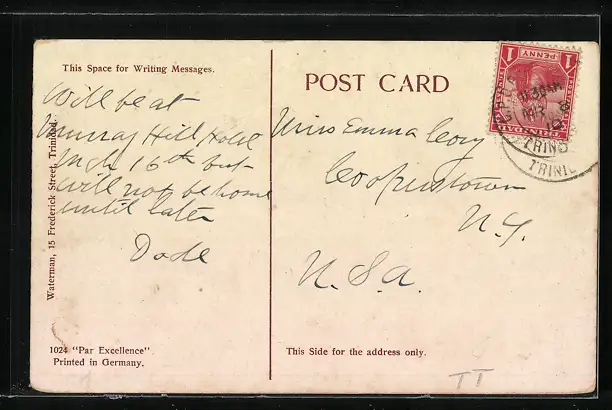 This Space for Writing Messages.
Will be at
Murray Hill Hotel
Mch 16th but
will not be home
until later
Dode
Waterman, 15 Frederick Street, Trinidad.
1024 "Par Excellence"
Printed in Germany.
POST CARD
Miss Emma Cory
Cooperstown
N.Y.
U.S.A.
This Side for the address only.
1 PENNY 1
TRINIDAD
11 30 AM
MR
TRINI
TT